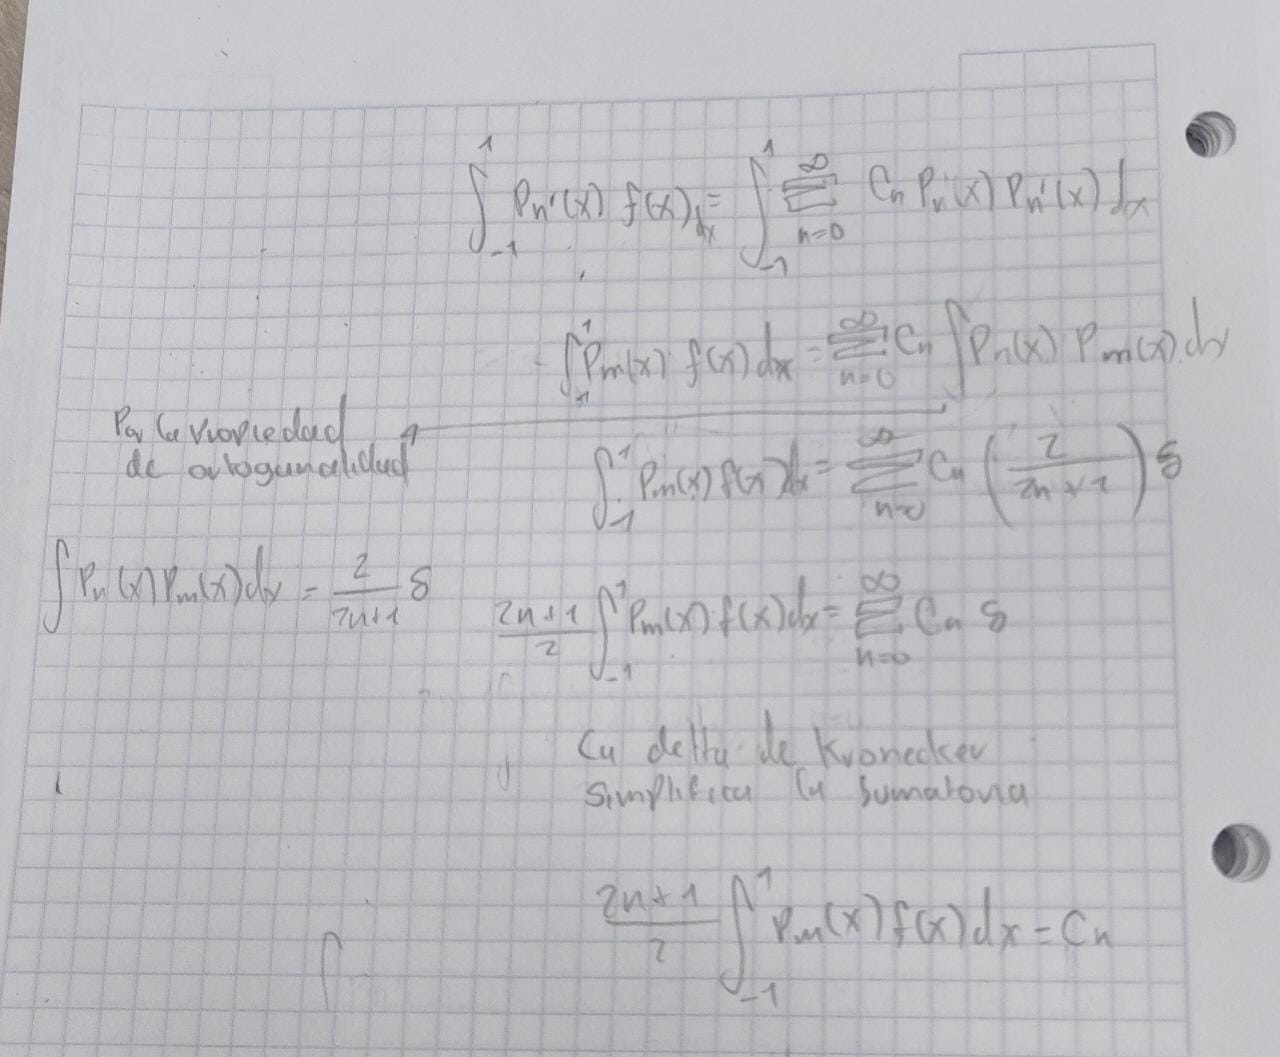 ∫_{-1}^{1} Pn'(x) f(x) dx = ∫_{-1}^{1} Σ_{n=0}^{∞} Cn Pn(x) Pn'(x) dx
∫_{-1}^{1} Pm(x) f(x) dx = Σ_{n=0}^{∞} Cn ∫ Pn(x) Pm(x) dx
Por la propiedad
de ortogonalidad
∫_{-1}^{1} Pm(x) f(x) dx = Σ_{n=0}^{∞} Cn (2/(2n+1)) δ
∫ Pn(x) Pm(x) dx = 2/(2n+1) δ
(2n+1)/2 ∫_{-1}^{1} Pm(x) f(x) dx = Σ_{n=0}^{∞} Cn δ
La delta de Kronecker
simplifica la sumatoria
(2n+1)/2 ∫_{-1}^{1} Pm(x) f(x) dx = Cn